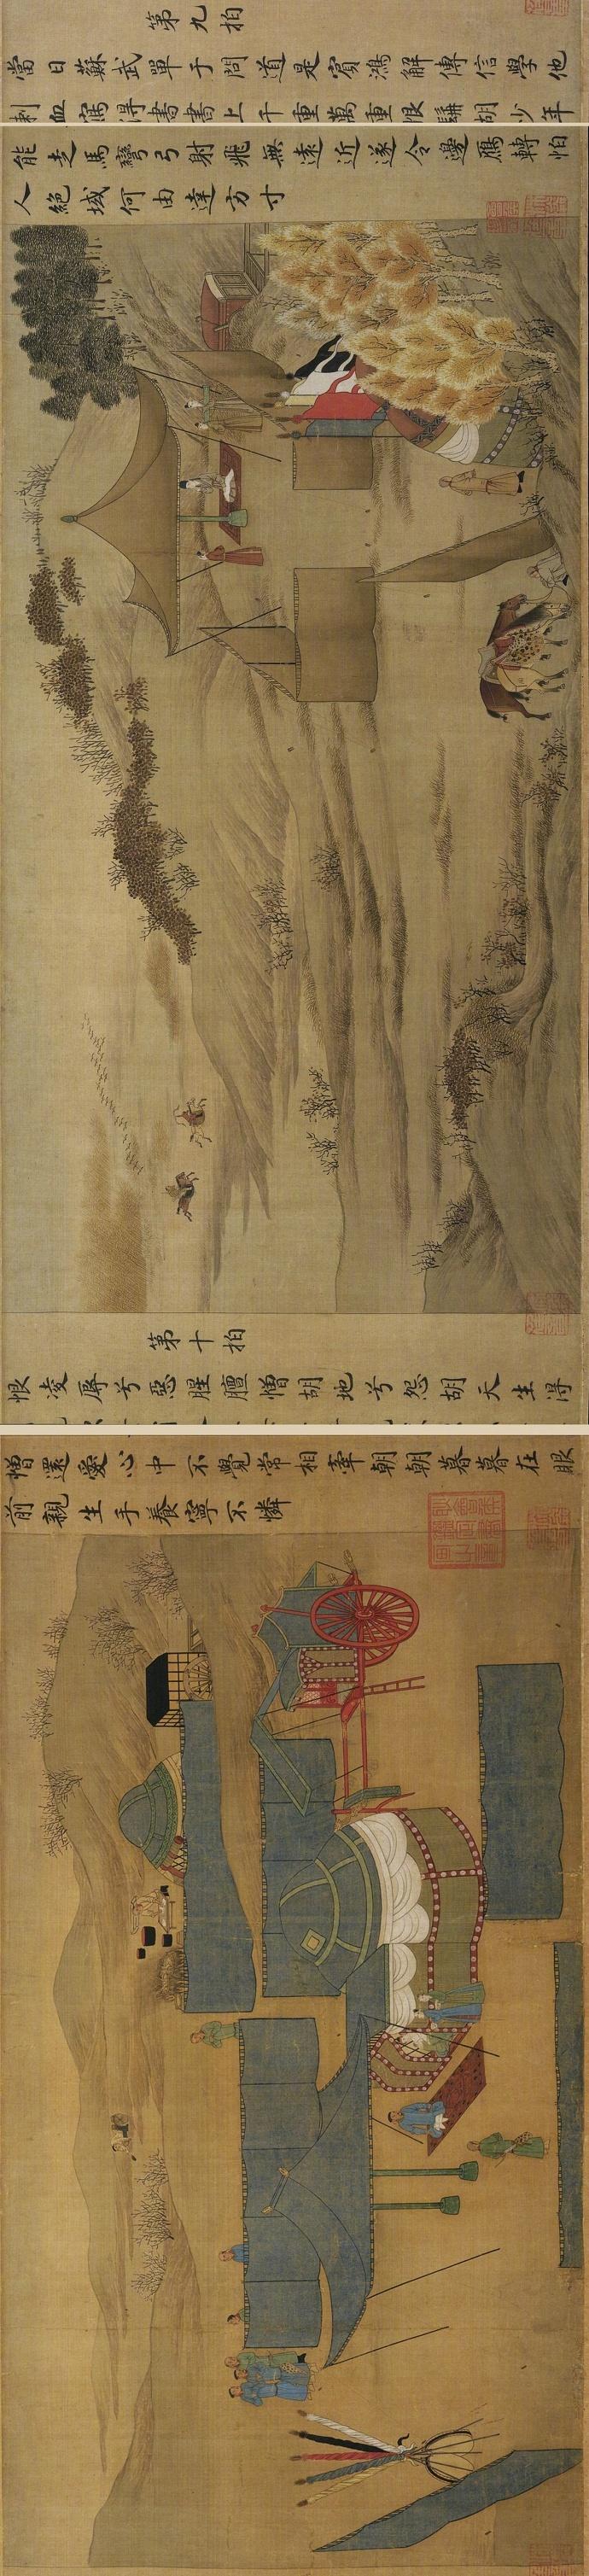 第九拍
當日蘇武單于問道是賓鴻解傳信學他
刺血寫得書書上千重萬重恨髯胡少年
能走馬彎弓射飛無遠近遂令邊鴈轉怕
人絕域何由達方寸
第十拍
恨凌辱兮惡腥膻憎胡地兮怨胡天生得
憎還愛心中不覺常相牽朝朝暮暮在眼
前親生手養寧不憐